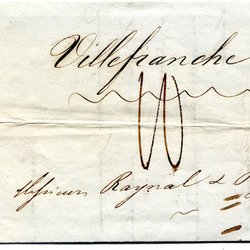 Villefranche
Messieurs Raynal &